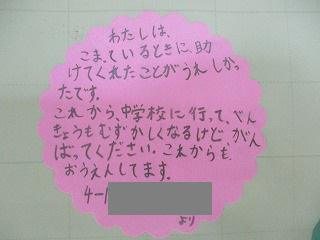 わたしは、
こまっているときに、助
けてくれたことがうれしかっ
たです。
これから、中学校に行って、べん
きょうもむずかしくなるけど がん
ばってください。これからも、
おうえんしてます。
4-1
より